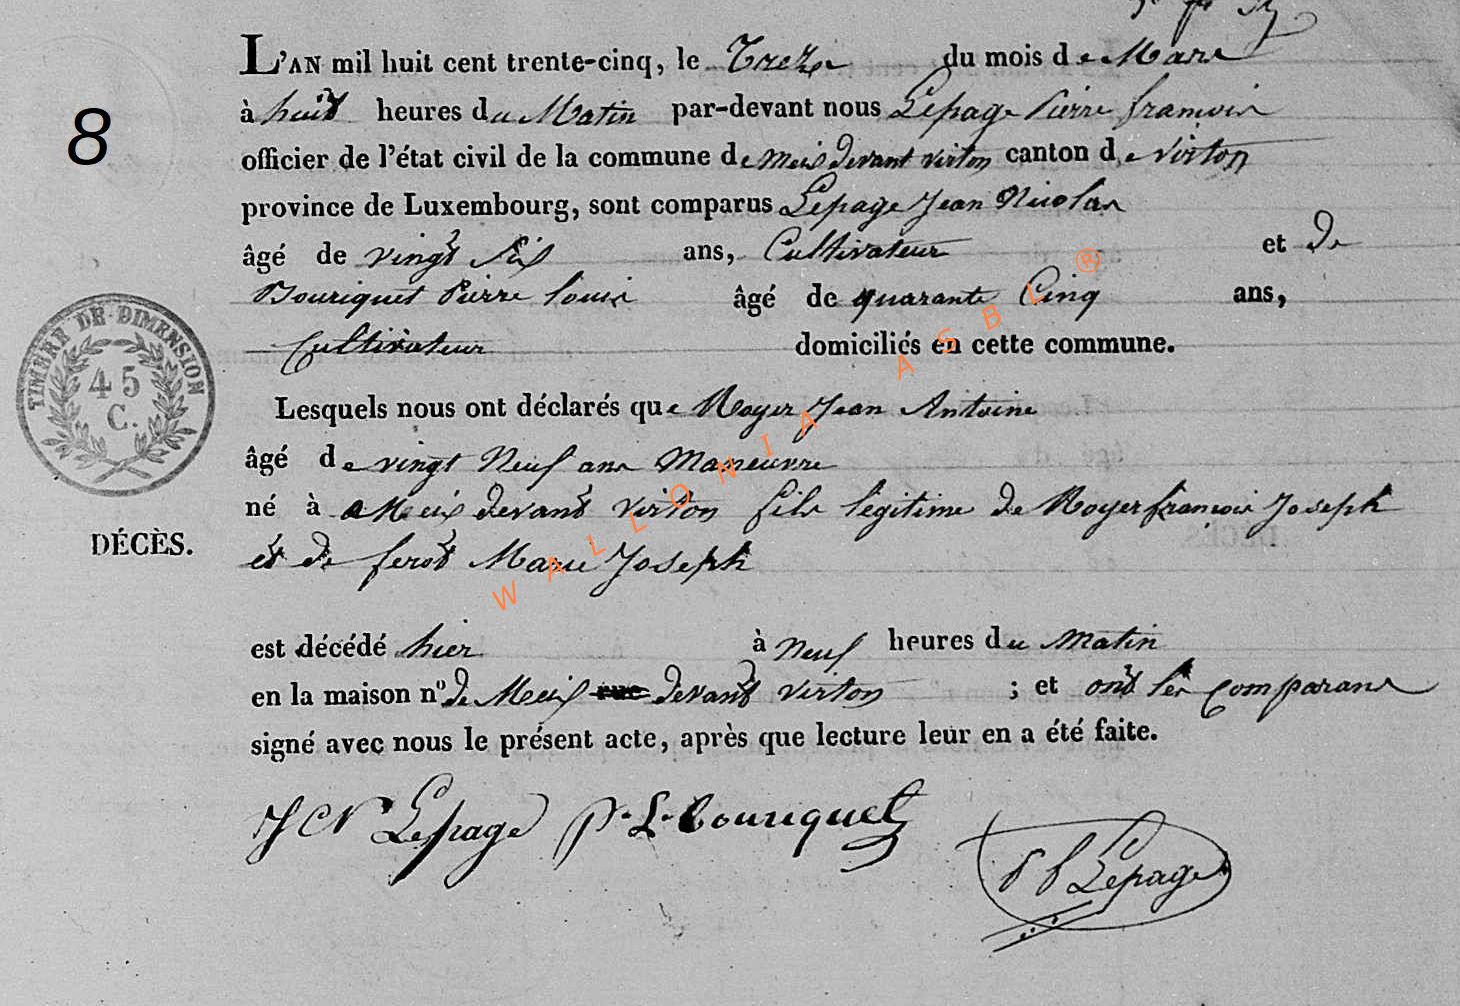 8
L'AN mil huit cent trente-cinq, le Treize du mois de Mars
à huit heures du Matin par-devant nous Lepage Pierre françois
officier de l'état civil de la commune de Meix devant virton canton de virton
province de Luxembourg, sont comparus Lepage Jean Nicolas
âgé de vingt six ans, Cultivateur et de
Bouriquet Pierre louis âgé de quarante Cinq ans,
Cultivateur domiciliés en cette commune.
Lesquels nous ont déclarés que Royer Jean Antoine
âgé de vingt Neuf ans Maneuvre
né à Meix devant virton fils légitime de Royer françois Joseph
et de ferot Marie Joseph
est décédé hier à Neuf heures du Matin
en la maison n° de Meix rue devant virton ; et ont les comparans
signé avec nous le présent acte, après que lecture leur en a été faite.
JCN Lepage P. L. Bouriquet
P f Lepage
TIMBRE DE DIMENSION
45
C.
DÉCÈS.
WALLONIA ASBL ®